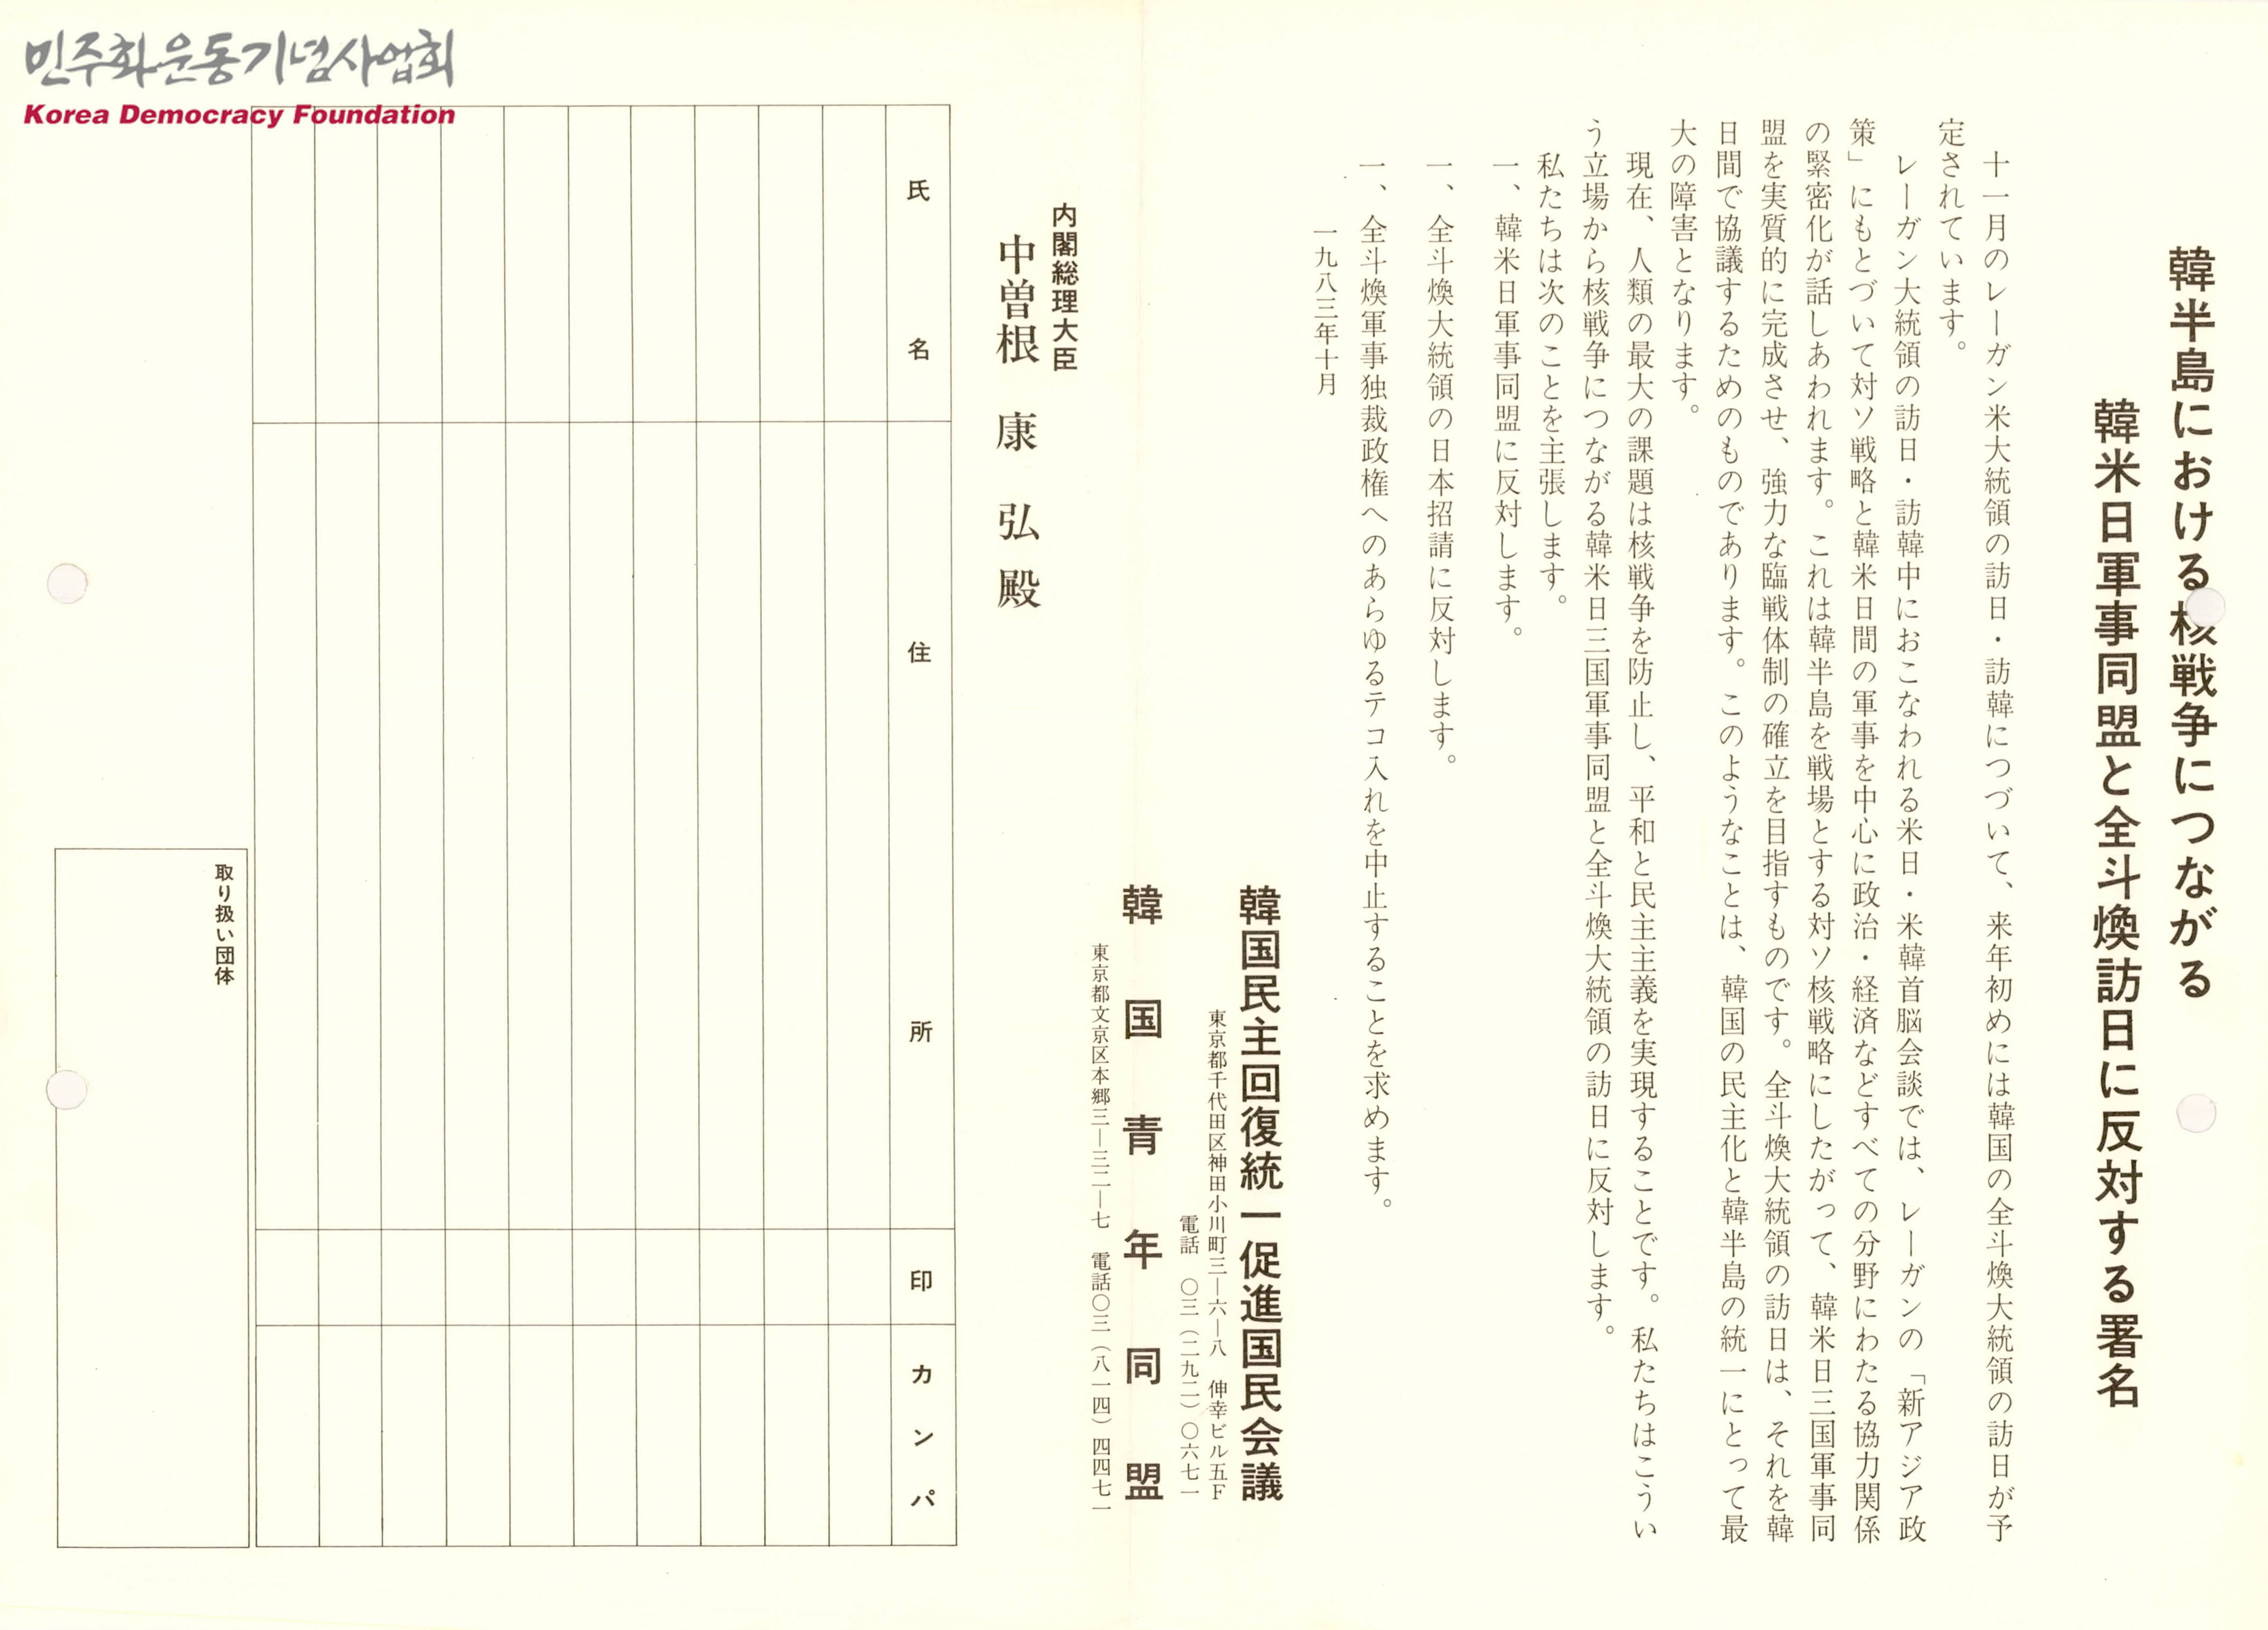 민주화운동기념사업회
Korea Democracy Foundation
韓半島における核戦争につながる
韓米日軍事同盟と全斗煥訪日に反対する署名
十一月のレーガン米大統領の訪日・訪韓につづいて、来年初めには韓国の全斗煥大統領の訪日が予
定されています。
レーガン大統領の訪日・訪韓中におこなわれる米日・米韓首脳会談では、レーガンの「新アジア政
策」にもとづいて対ソ戦略と韓米日間の軍事を中心に政治・経済などすべての分野にわたる協力関係
の緊密化が話しあわれます。これは韓半島を戦場とする対ソ核戦略にしたがって、韓米日三国軍事同
盟を実質的に完成させ、強力な臨戦体制の確立を目指すものです。全斗煥大統領の訪日は、それを韓
日間で協議するためのものであります。このようなことは、韓国の民主化と韓半島の統一にとって最
大の障害となります。
現在、人類の最大の課題は核戦争を防止し、平和と民主主義を実現することです。私たちはこうい
う立場から核戦争につながる韓米日三国軍事同盟と全斗煥大統領の訪日に反対します。
私たちは次のことを主張します。
一、韓米日軍事同盟に反対します。
一、全斗煥大統領の日本招請に反対します。
一、全斗煥軍事独裁政権へのあらゆるテコ入れを中止することを求めます。
一九八三年十月
韓国民主回復統一促進国民会議
東京都千代田区神田小川町三―六―八 伸幸ビル五F
電話 〇三(二九二)〇六七一
韓国青年同盟
東京都文京区本郷三―三二―七 電話〇三(八一四)四四七一
内閣総理大臣
中曽根康弘殿
氏名
住所
印
カンパ
取り扱い団体